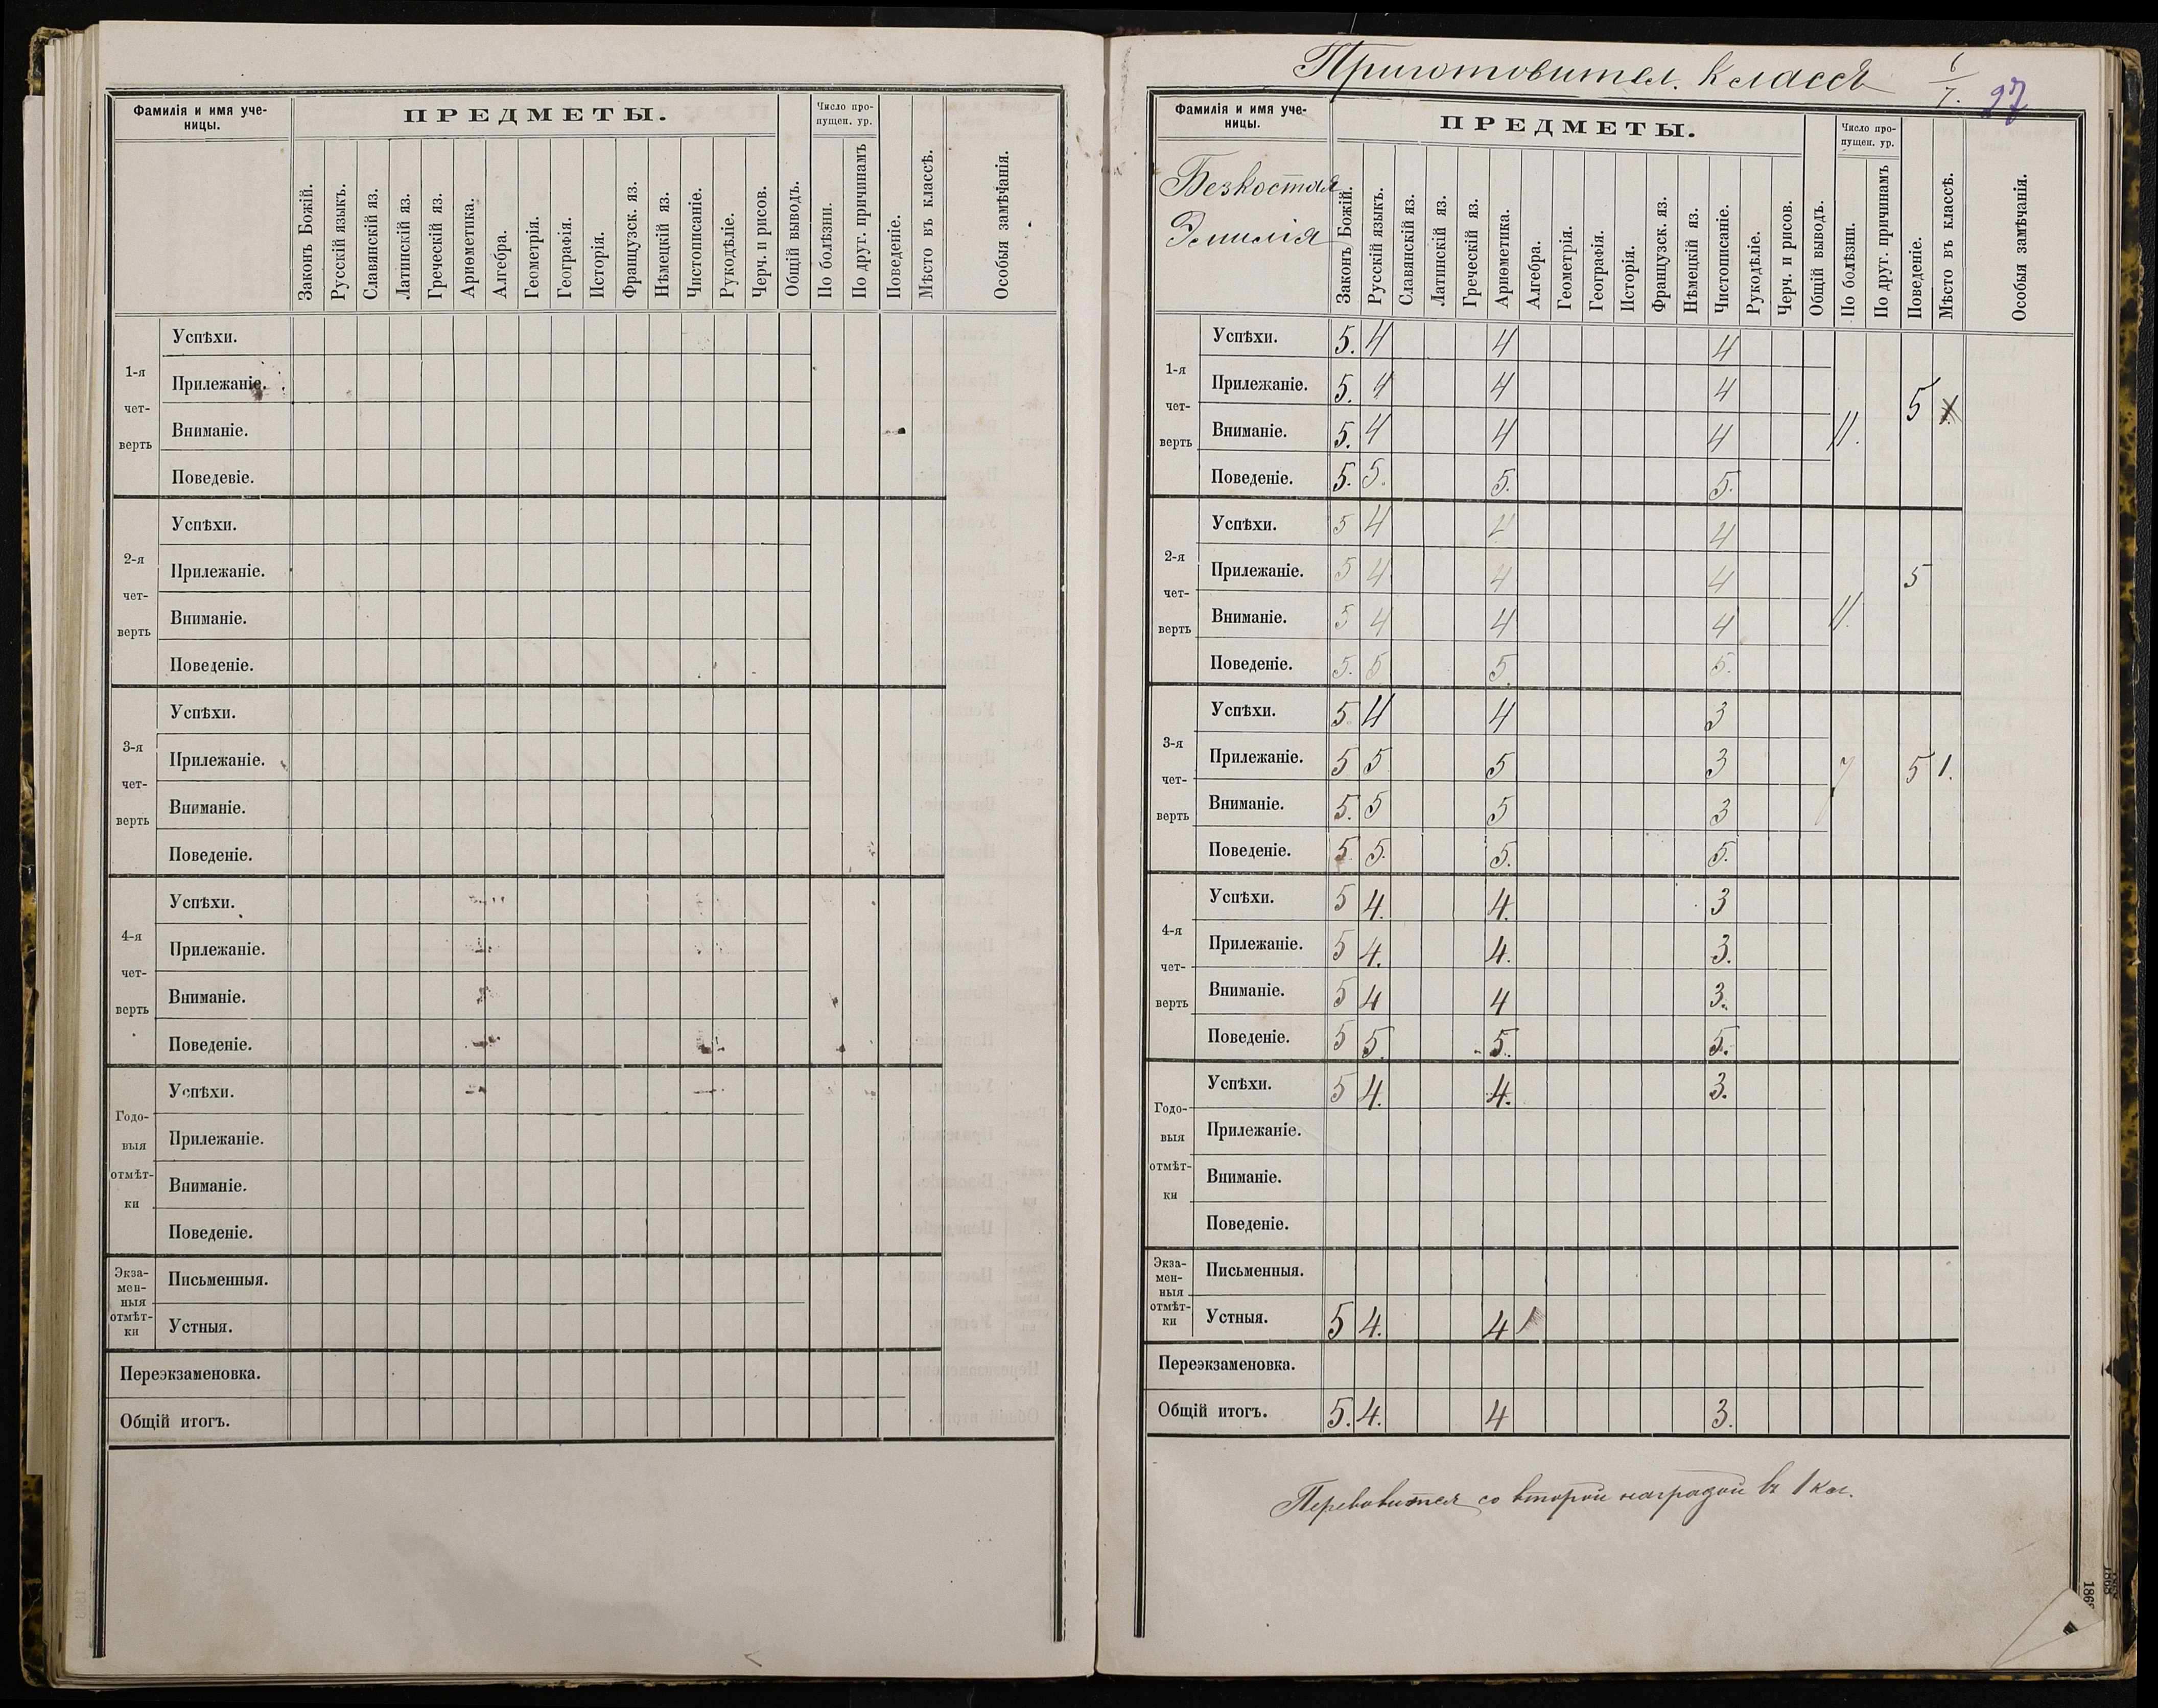 Фамилія и имя уче-
ницы.
ПРЕДМЕТЫ.
Число про-
пущен. ур.
Законъ Божій.
Русскій языкъ.
Славянскій яз.
Латинскій яз.
Греческій яз.
Ариѳметика.
Алгебра.
Геометрія.
Географія.
Исторія.
Французск. яз.
Нѣмецкій яз.
Чистописаніе.
Рукодѣліе.
Черч. и рисов.
Общій выводъ.
По болѣзни.
По друг. причинамъ
Поведеніе.
Мѣсто въ классѣ.
Особыя замѣчанія.
1-я
чет-
верть
Успѣхи.
Прилежаніе.
Вниманіе.
Поведевіе.
2-я
чет-
верть
Успѣхи.
Прилежаніе.
Вниманіе.
Поведеніе.
3-я
чет-
верть
Успѣхи.
Прилежаніе.
Вниманіе.
Поведеніе.
4-я
чет-
верть
Успѣхи.
Прилежаніе.
Вниманіе.
Поведеніе.
Годо-
выя
отмѣт-
ки
Успѣхи.
Прилежаніе.
Вниманіе.
Поведеніе.
Экза-
мен-
ныя
отмѣт-
ки
Письменныя.
Устныя.
Переэкзаменовка.
Общій итогъ.
Приготовител. классъ
6/7.
27
Фамилія и имя уче-
ницы.
Безкостая
Эмилія
ПРЕДМЕТЫ.
Число про-
пущен. ур.
Законъ Божій.
Русскій языкъ.
Славянскій яз.
Латинскій яз.
Греческій яз.
Ариѳметика.
Алгебра.
Геометрія.
Географія.
Исторія.
Французск. яз.
Нѣмецкій яз.
Чистописаніе.
Рукодѣліе.
Черч. и рисов.
Общій выводъ.
По болѣзни.
По друг. причинамъ
Поведеніе.
Мѣсто въ классѣ.
Особыя замѣчанія.
1-я
чет-
верть
Успѣхи. 5. 4 4 4
Прилежаніе. 5. 4 4 4
Вниманіе. 5. 4 4 4
Поведеніе. 5. 5. 5. 5.
11. 5
2-я
чет-
верть
Успѣхи. 5 4 4 4
Прилежаніе. 5 4 4 4
Вниманіе. 5 4 4 4
Поведеніе. 5. 5 5. 5.
11. 5
3-я
чет-
верть
Успѣхи. 5. 4 4 3
Прилежаніе. 5 5 5 3
Вниманіе. 5. 5 5 3
Поведеніе. 5 5. 5. 5.
7 5 1.
4-я
чет-
верть
Успѣхи. 5 4. 4. 3
Прилежаніе. 5 4. 4. 3.
Вниманіе. 5 4 4 3.
Поведеніе. 5 5. 5. 5.
Годо-
выя
отмѣт-
ки
Успѣхи. 5 4. 4. 3.
Прилежаніе.
Вниманіе.
Поведеніе.
Экза-
мен-
ныя
отмѣт-
ки
Письменныя.
Устныя. 5 4. 4
Переэкзаменовка.
Общій итогъ. 5. 4. 4 3.
Переводится со второй наградой въ 1 кл.